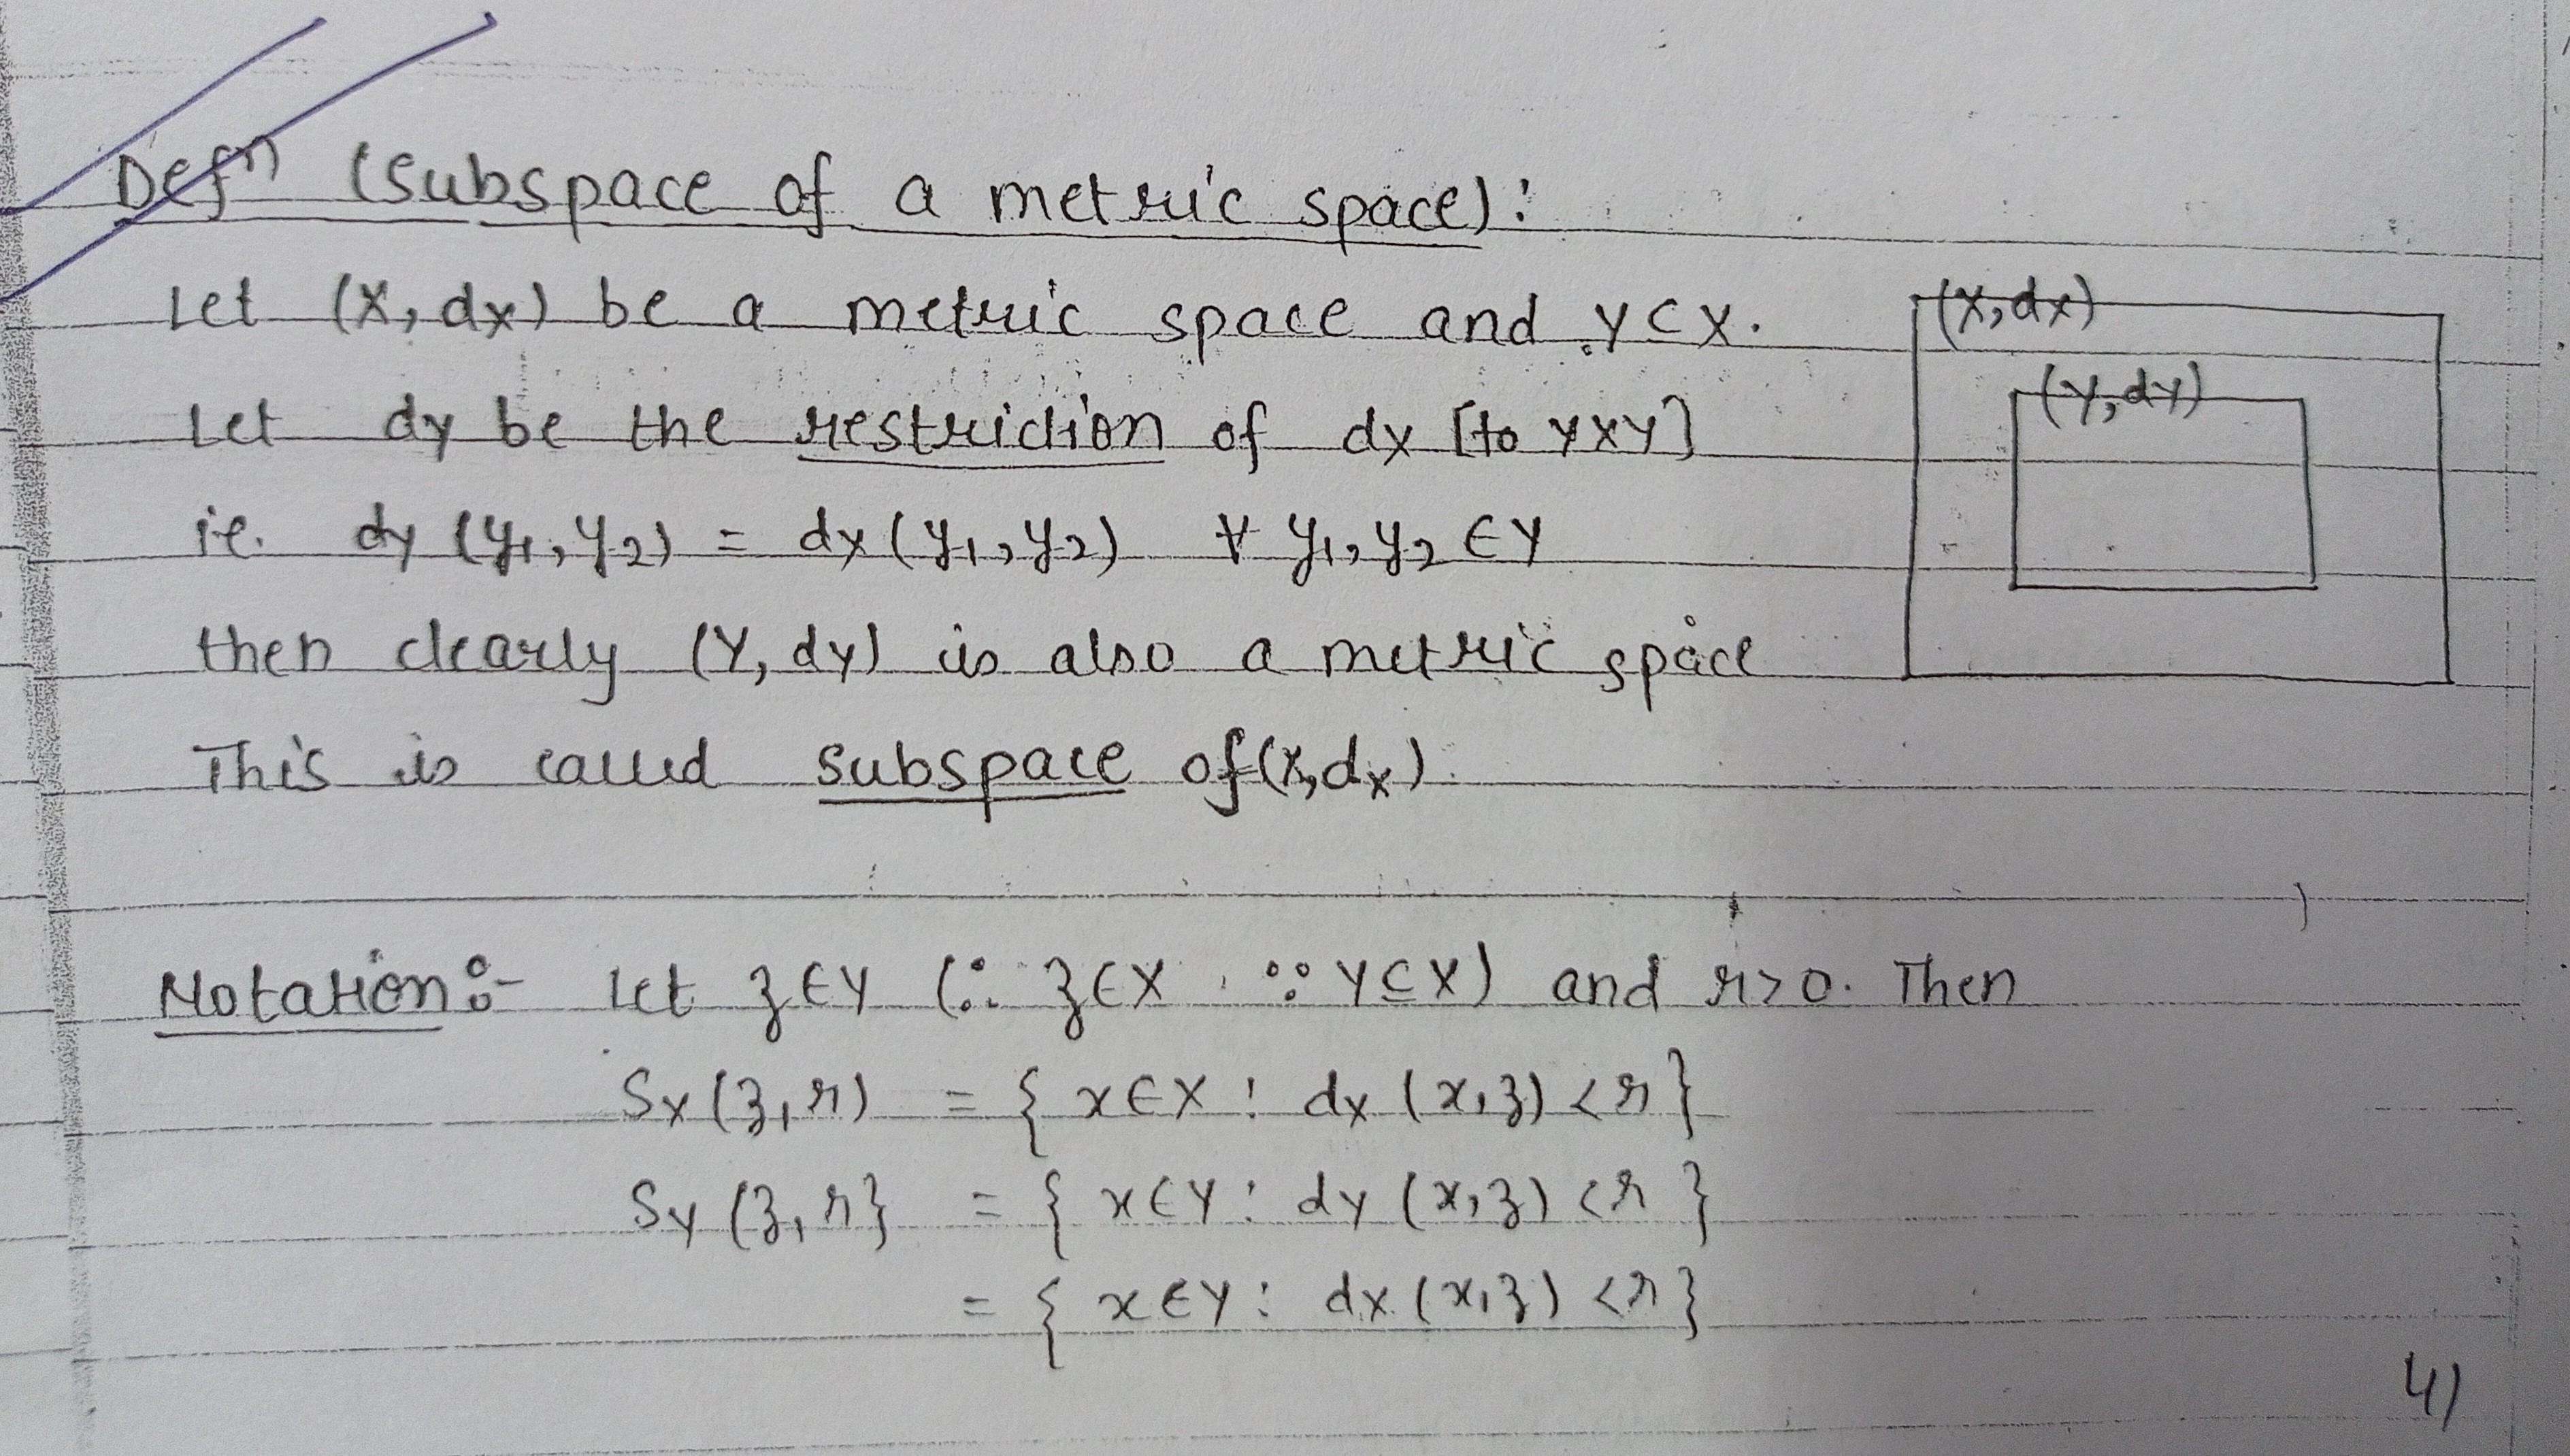 Defⁿ (Subspace of a metric space):
Let (X, dx) be a metric space and Y⊂X.
(X, dx)
(Y, dy)
Let dy be the restriction of dx [to Y×Y]
ie. dy (y₁, y₂) = dx (y₁, y₂) ∀ y₁, y₂ ∈ Y
then clearly (Y, dy) is also a metric space
This is called subspace of (X, dx).
Notation:- Let z∈Y (∴ z∈X ∵ Y⊆X) and r>0. Then
Sx (z, r) = { x∈X : dx (x, z) < r }
Sy (z, r} = { x∈Y : dy (x, z) < r }
= { x∈Y : dx (x, z) < r }
4)